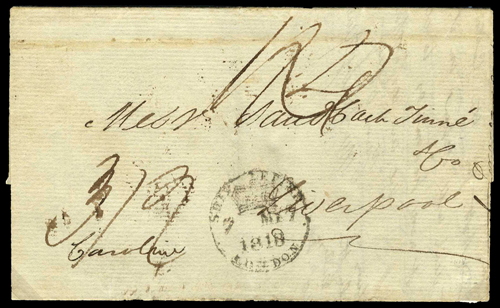 Messr Sandbach Tinné
& Co
Liverpool
Caroline
SHIP LETTER
1818
LONDON